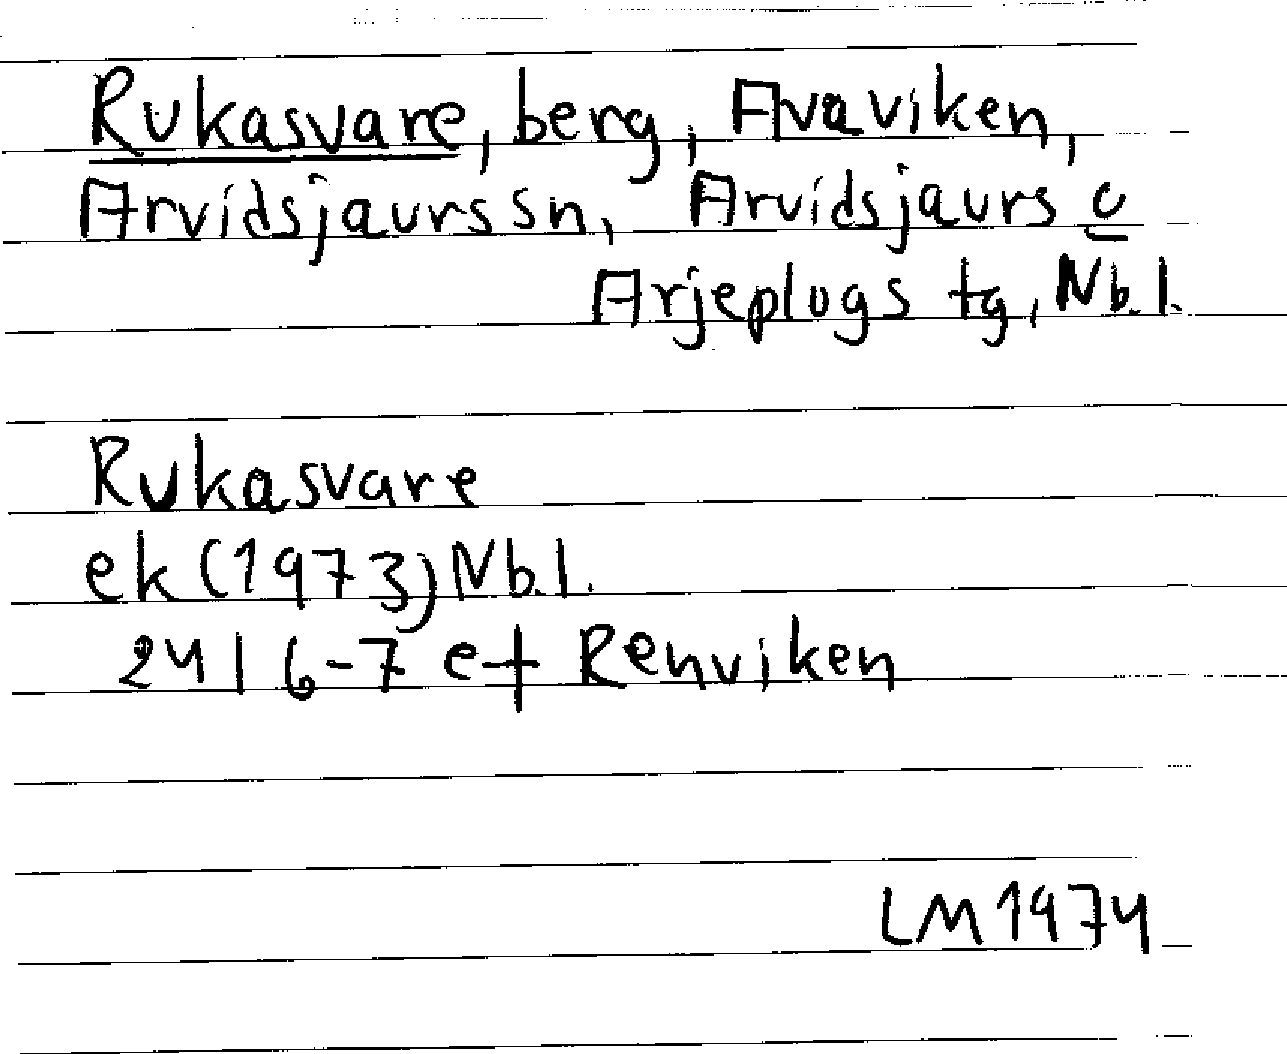 Rukasvare, berg, Avaviken,
Arvidsjaurs sn, Arvidsjaurs o
Arjeplogs tg, Nb.l.
Rukasvare
ek (1973) Nb.l.
24 I 6-7 e-f Renviken
LM 1974